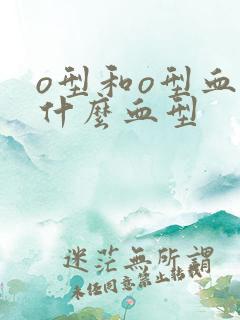 o型和o型血
什麼血型
迷茫無所謂
未经同意禁止转载